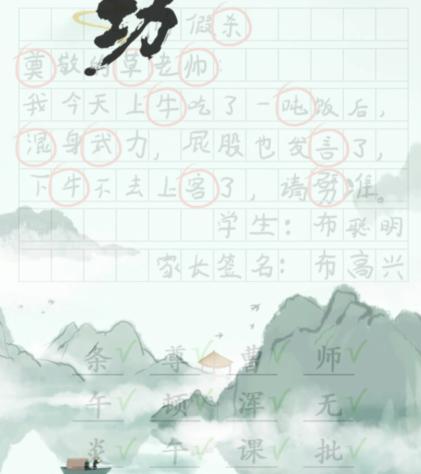 功
假杀
奠敬的草老帅：
我今天上牛吃了一吨饭后，
混身武力，屁股也发言了，
下牛不去上客了，请劈准。
学生：布聪明
家长签名：布高兴
条 尊 曹 师
午 顿 浑 无
炎 午 课 批